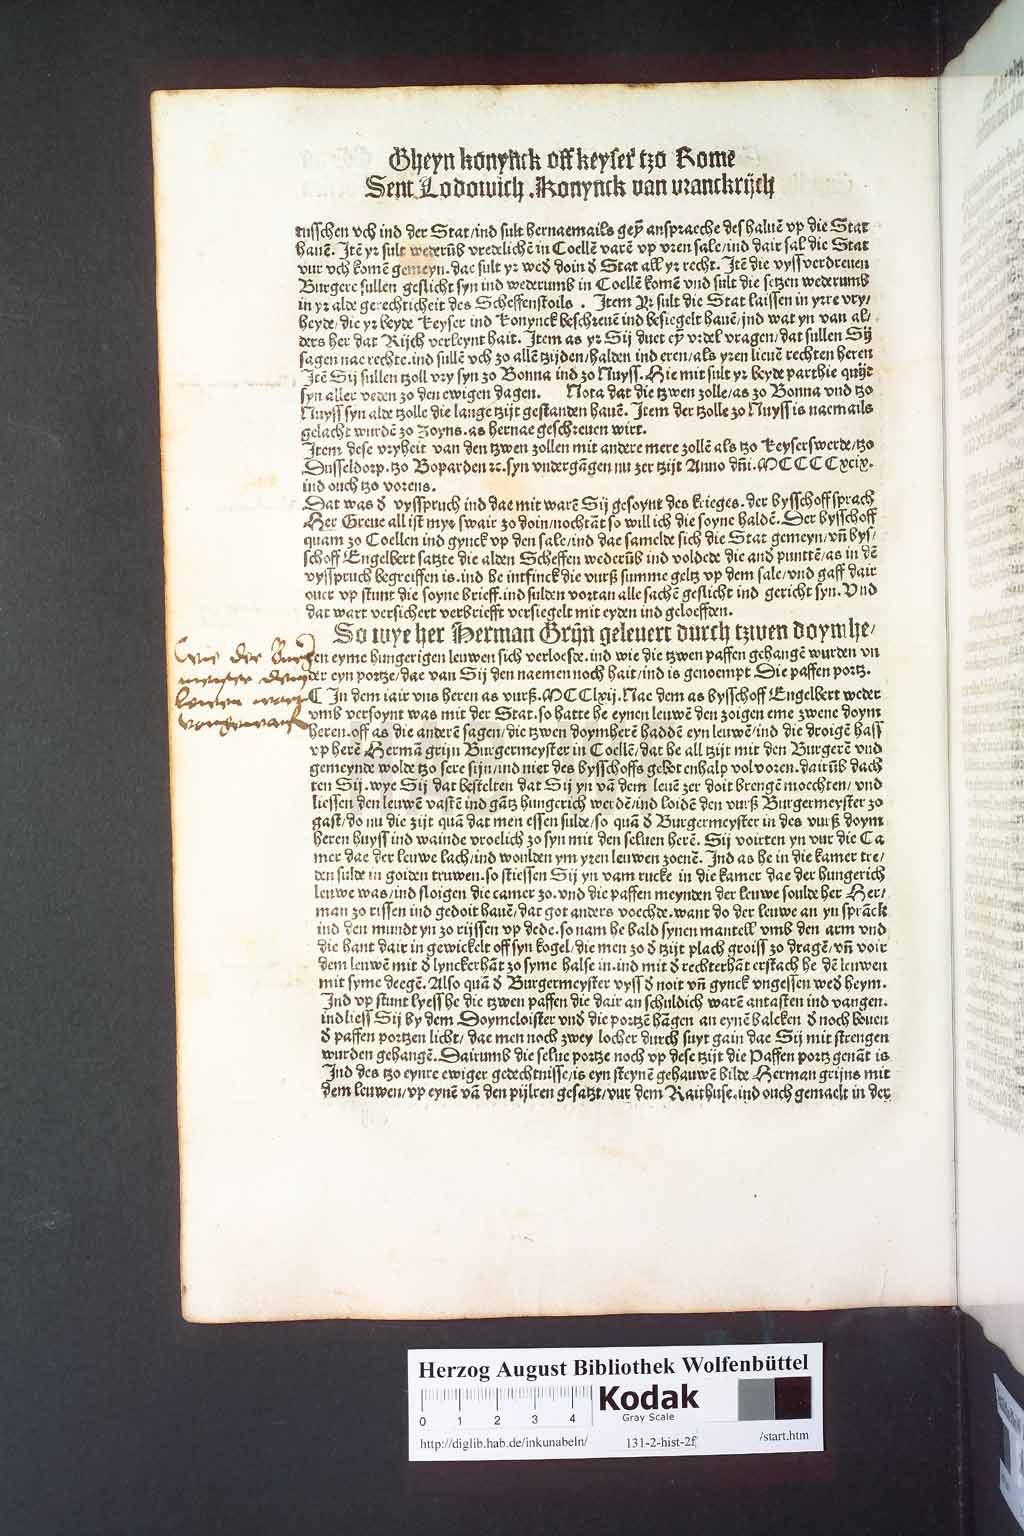 Gheyn konynck off keyser tzo Rome
Sent Lodowich. Konynck van vranckrijch
tusschen vch ind der Stat/ind sult hernaemails geÿ anspraeche des haluē vp die Stat
hauē. Itē yr sult wederūb vredelichē in Coellē varē vp vren sale/ind dair sal die Stat
vur vch komē gemeyn. dae sult yr wed doin d Stat all yr recht. Itē die vyssverdreuen
Burgere sullen geslicht syn ind wederumb in Coellē komē vnd sult die setzen wederumb
in yr alde gerechticheit des Scheffenstoils. Item Yr sult die Stat laissen in yrre vry/
heyde/die yr beyde Keyser ind Konynck beschreuē ind besiegelt hauē/ind wat yn van al/
ders her dat Rijch verleynt hait. Item as yr Sij duet eÿ vrdel vragen/dat sullen Sij
sagen nae rechte. ind sullē vch zo allē tzijden/halden ind eren/als yren lieuē rechten heren
Itē Sij sullen tzoll vry syn zo Bonna ind zo Nuyss. Hie mit sult yr beyde parthie quijt
syn aller veden zo den ewigen dagen. Nota dat die tzwen zolle/as zo Bonna vnd tzo
Nuyss syn alde tzolle die lange tzijt gestanden hauē. Item der tzolle zo Nuyss is naemails
gelacht wurdē zo Zoyns. as hernae geschreuen wirt.
Item dese vryheit van den tzwen zollen mit andere mere zollē als tzo Keyserswerde/tzo
Dusseldorp. tzo Boparden ꝛc. syn vndergāgen nu zer tzijt Anno dñi. MCCCCxcix.
ind ouch tzo vorens.
Dat was d vysspruch ind dae mit warē Sij gesoynt des krieges. der bysschoff sprach
Her Greue all ist myr swair zo doin/nochtāt so will ich die soyne haldē. Der bysschoff
quam zo Coellen ind gynck vp den sale/ind dae samelde sich die Stat gemeyn/vñ bys/
schoff Engelbert satzte die alden Scheffen wederūb ind voldede die and punttē/as in dē
vysspruch begreiffen is. ind he intfinck die vurß summe geltz vp dem sale/vnd gaff dair
ouer vp stunt die soyne brieff. ind sulden vortan alle sachē geslicht ind gericht syn. Vnd
dat wart versichert verbriefft versiegelt mit eyden ind geloeffden.
So wye her Herman Grijn geleuert durch tzwen doymhe/
ren eyme hungerigen leuwen sich verloesde. ind wie die tzwen paffen gehangē wurden vn
der eyn portze/dae van Sij den naemen noch hait/ind is genoempt Die paffen portz.
Wie der Burge
meyster dem
lewen wart
vorgeworfen
¶ In dem iair vns heren as vurß. MCClxij. Nae dem as bysschoff Engelbert weder
vmb versoynt was mit der Stat. so hatte he eynen leuwē den zoigen eme zwene doym
heren. off as die anderē sagen/die tzwen doymherē haddē eyn leuwē/ind die droigē hass
vp herē Hermā grijn Burgermeyster in Coellē/dat he all tzijt mit den Burgerē vnd
gemeynde wolde tzo sere sijn/ind niet des bysschoffs gebot enhalp volvoren. dairūb dach
ten Sij. wye Sij dat bestelten dat Sij yn vā dem leuē zer doit brengē moechten/vnd
liessen den leuwē vastē ind gātz hungerich werdē/ind loidē den vurß Burgermeyster zo
gast/do nu die zijt quā dat men essen sulde/so quā d Burgermeyster in des vurß doym
heren huyss ind wainde vroelich zo syn mit den seluen herē. Sij voirten yn vur die Ca
mer dae der leuwe lach/ind woulden ym yren leuwen zoenē. Ind as he in die kamer tre/
den sulde in goiden truwen. so stiessen Sij yn vam rucke in die kamer dae der hungerich
leuwe was/ind sloigen die camer zo. vnd die paffen meynden der leuwe soulde her Her/
man zo rissen ind gedoit hauē/dat got anders voechde. want do der leuwe an yn sprāck
ind den mundt yn zo rijssen vp dede. so nam he bald synen mantell vmb den arm vnd
die hant dair in gewickelt off syn kogel/die men zo d tzijt plach groiss zo dragē/vñ voir
dem leuwē mit d lynckerhāt zo syme halse in. ind mit d rechterhāt erstach he dē leuwen
mit syme deegē. Also quā d Burgermeyster vyss d noit vñ gynck vngessen wed heym.
Ind vp stunt lyess he die tzwen paffen die dair an schuldich warē antasten ind vangen.
ind liess Sij by dem Doymcloister vnd die portzē hāgen an eynē balcken d noch bouen
d paffen portzen licht/ dae men noch zwey locher durch suyt gain dae Sij mit strengen
wurden gehangē. Dairumb die selue portze noch vp dese tzijt die Paffen portz genāt is
Ind des tzo eynre ewiger gedechtnisse/is eyn steynē gehauwē bilde Herman grijns mit
dem leuwen/vp eynē vā den pijlren gesatzt/vur dem Raithuse. ind ouch gemaelt in der
Herzog August Bibliothek Wolfenbüttel
Kodak
Gray Scale
0 1 2 3 4
http://diglib.hab.de/inkunabeln/ 131-2-hist-2f /start.htm